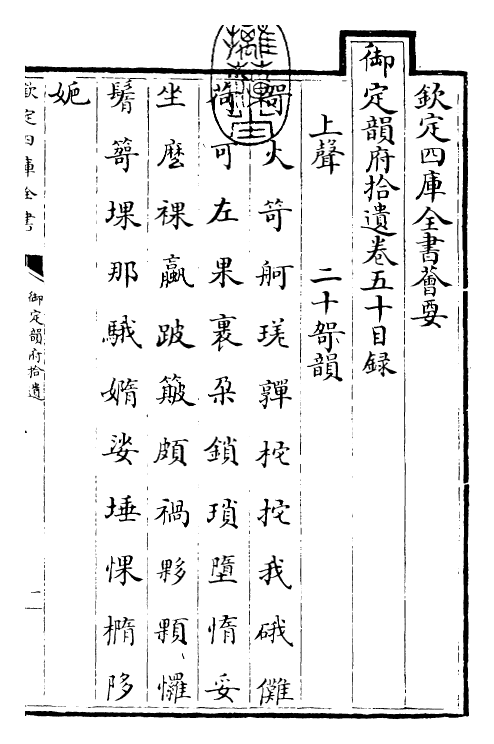 欽定四庫全書薈要
御定韻府拾遺卷五十目録
上聲 二十哿韻
哿火笴舸瑳嚲柁拕我硪儺
荷可左果裹朶鎖瑣墮惰妥
坐麽裸蠃跛簸頗禍夥顆㦬
鬌䈷堁那騀嫷娑埵惈橢陊
妑
欽定四庫全書
御定韻府拾遺
一